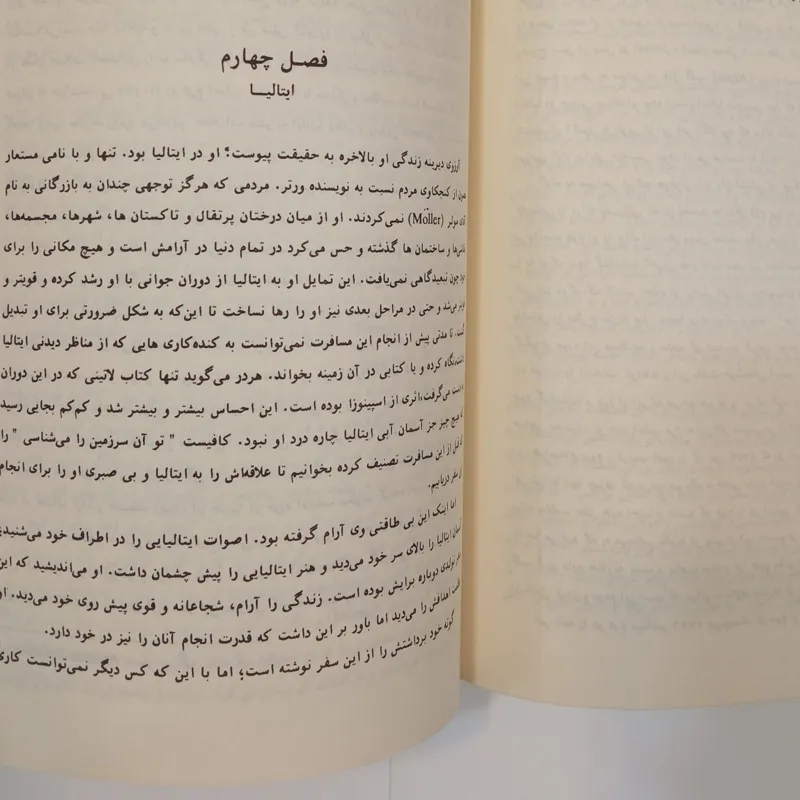 فصل چهارم
ایتالیا
آرزوی دیرینه زندگی او بالاخره به حقیقت پیوست؛ او در ایتالیا بود. تنها و با نامی مستعار
از کنجکاوی مردم نسبت به نویسنده ورتر. مردمی که هرگز توجهی چندان به بازرگانی به نام
آقای مولر (Möller) نمی‌کردند. او از میان درختان پرتقال و تاکستان ها، شهرها، مجسمه‌ها،
و ساختمان ها گذشته و حس می‌کرد در تمام دنیا در آرامش است و هیچ مکانی را برای
خود چون تبعیدگاهی نمی‌یافت. این تمایل او به ایتالیا از دوران جوانی با او رشد کرده و قویتر و
قویتر می‌شد و حتی در مراحل بعدی نیز او را رها نساخت تا این‌که به شکل ضرورتی برای او تبدیل
گشت. تا مدتی پیش از انجام این مسافرت نمی‌توانست به کنده‌کاری هایی که از مناظر دیدنی ایتالیا
نگاه کرده و یا کتابی در آن زمینه بخواند. هردر می‌گوید تنها کتاب لاتینی که در این دوران
می‌گرفت، اثری از اسپینوزا بوده است. این احساس بیشتر و بیشتر شد و کم‌کم بجایی رسید
که هیچ چیز جز آسمان آبی ایتالیا چاره درد او نبود. کافیست " تو آن سرزمین را می‌شناسی " را
که قبل از این مسافرت تصنیف کرده بخوانیم تا علاقه‌اش را به ایتالیا و بی صبری او را برای انجام
سفر دریابیم.
اما اینک این بی طاقتی وی آرام گرفته بود. اصوات ایتالیایی را در اطراف خود می‌شنید،
آسمان ایتالیا را بالای سر خود می‌دید و هنر ایتالیایی را پیش چشمان داشت. او می‌اندیشید که این
سفر تولدی دوباره برایش بوده است. زندگی را آرام، شجاعانه و قوی پیش روی خود می‌دید. او
اهدافش را می‌دید اما باور بر این داشت که قدرت انجام آنان را نیز در خود دارد.
گوته خود برداشتش را از این سفر نوشته است؛ اما با این که کس دیگر نمی‌توانست کاری